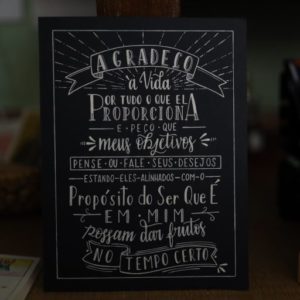 AGRADEÇO
à Vida
POR TUDO O QUE ELA
PROPORCIONA
E PEÇO QUE
meus objetivos
PENSE OU FALE SEUS DESEJOS
ESTANDO ELES ALINHADOS COM O
Propósito do Ser Que É
EM MIM
possam dar frutos
NO TEMPO CERTO